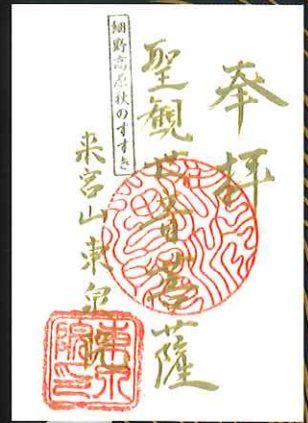 奉拝
聖観世音菩薩
細野高原秋のすすき
来宮山東泉院
東泉院印